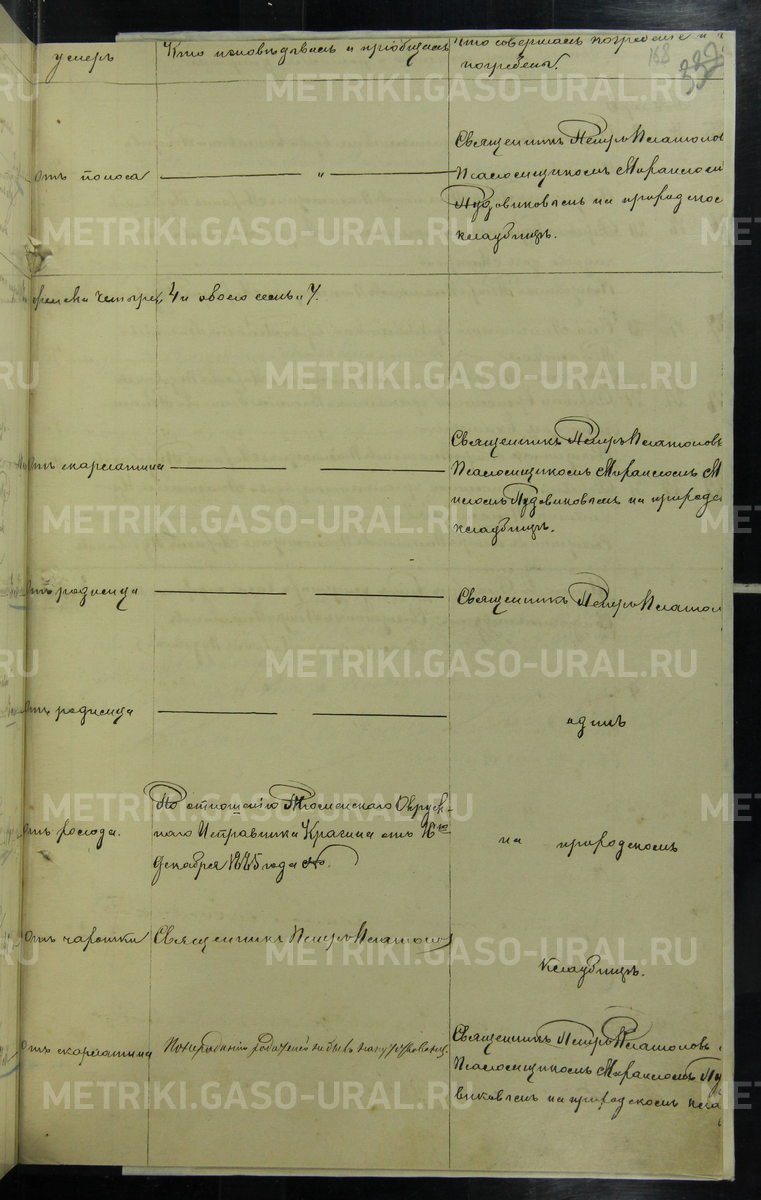 умеръ
Кто исповѣдывалъ и пріобщалъ
Кто совершалъ погребеніе и
погребены.
168
332
Отъ поноса
"
Священникъ Петръ Платонов
Псаломщикомъ
Пудовиковымъ на приходском
кладбищѣ.
четыре, 4 и обоего семь 7.
Отъ скарлатины
Священникъ Петръ Платоновъ
Псаломщикомъ
Пудовиковымъ на приходс
кладбищѣ.
Отъ родимца
Священникъ Петръ Платон
Отъ родимца
одинъ
По отношенію Тюменскаго Окруж-
наго Исправника Красина отъ 16го
Декабря 1885 года
на приходскомъ
Отъ
Отъ чахотки
Священникъ Петръ Платонов
кладбищѣ.
Отъ скарлатины
По нерадѣнію родителей не былъ напутствованъ.
Священникъ Петръ Платоновъ с
Псаломщикомъ Пу
виковымъ на приходскомъ кла
METRIKI.GASO-URAL.RU